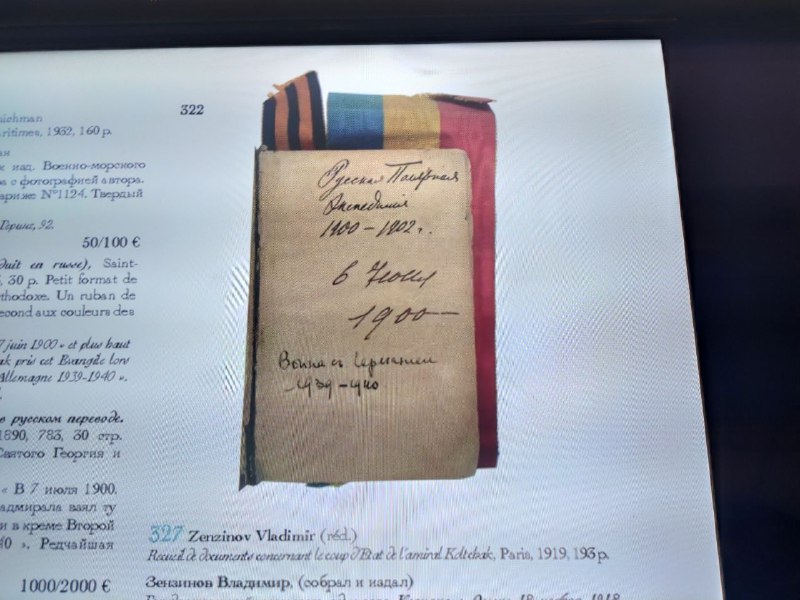 322
ichman
ritimes, 1932, 160 p.
ан
к изд. Военно-морского
а с фотографией автора.
ариже №1124. Твердый
Геринг, 92.
50/100 €
duit en russe), Saint-
, 30 p. Petit format de
thodoxe. Un ruban de
econd aux couleurs des
7 juin 1900 « et plus haut
ak pris cet Evangile lors
Allemagne 1939-1940 ».
в русском переводе.
1890, 783, 30 стр.
Святого Георгия и
« В 7 июля 1900.
адмирала взял ту
и в креме Второй
40 ». Редчайшая
1000/2000 €
Русская Полярная
Экспедиция
1900 – 1902 г.
6 Июля
1900
Война съ Германией
1939 – 1940
327 Zenzinov Vladimir (réd.)
Recueil de documents concernant le coup d'Etat de l'amiral Koltchak, Paris, 1919, 193 p.
Зензинов Владимир, (собрал и издал)